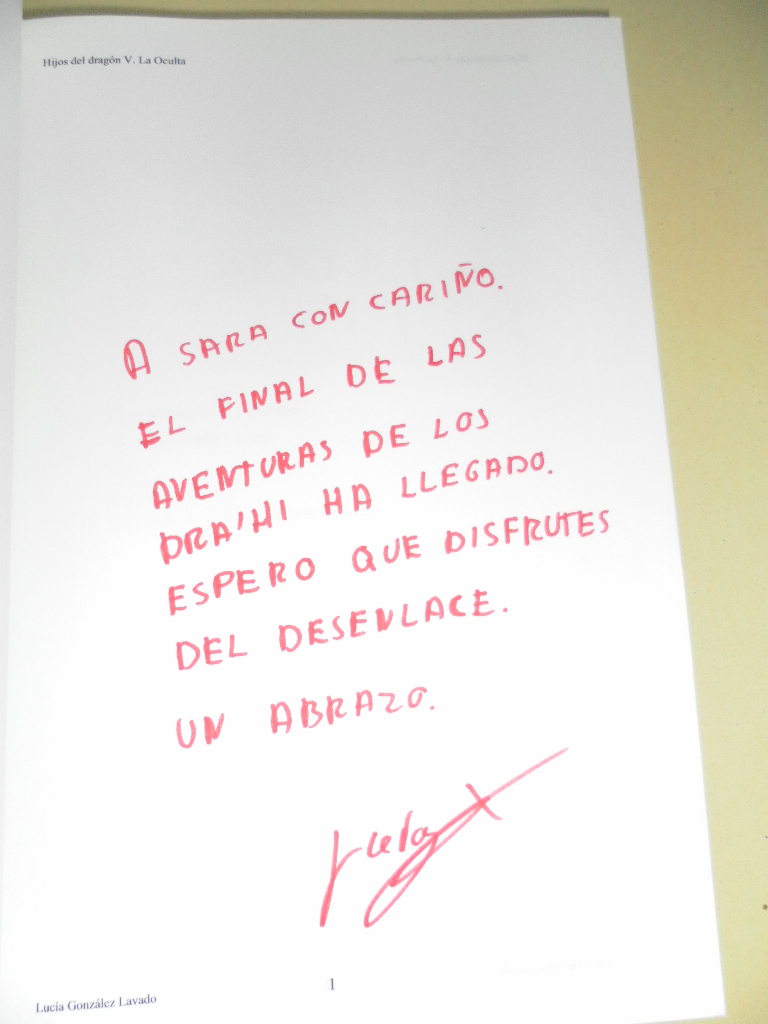 Hijos del dragón V. La Oculta
A SARA CON CARIÑO.
EL FINAL DE LAS
AVENTURAS DE LOS
DRA'HI HA LLEGADO.
ESPERO QUE DISFRUTES
DEL DESENLACE.
UN ABRAZO.
1
Lucía González Lavado